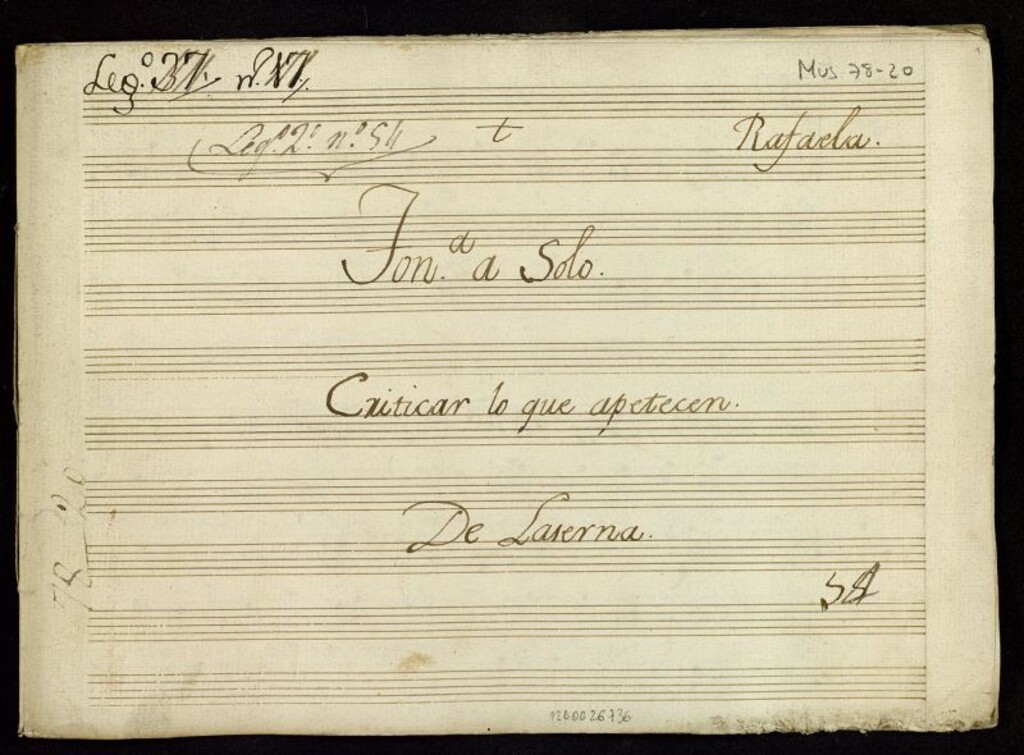 Leg.º 37. n.º 17.
Mus 78-20
Leg.º 2.º n.º 54
t
Rafaela.
Ton.ª a Solo.
Criticar lo que apetecen.
De Laserna.
78-20
1200026736